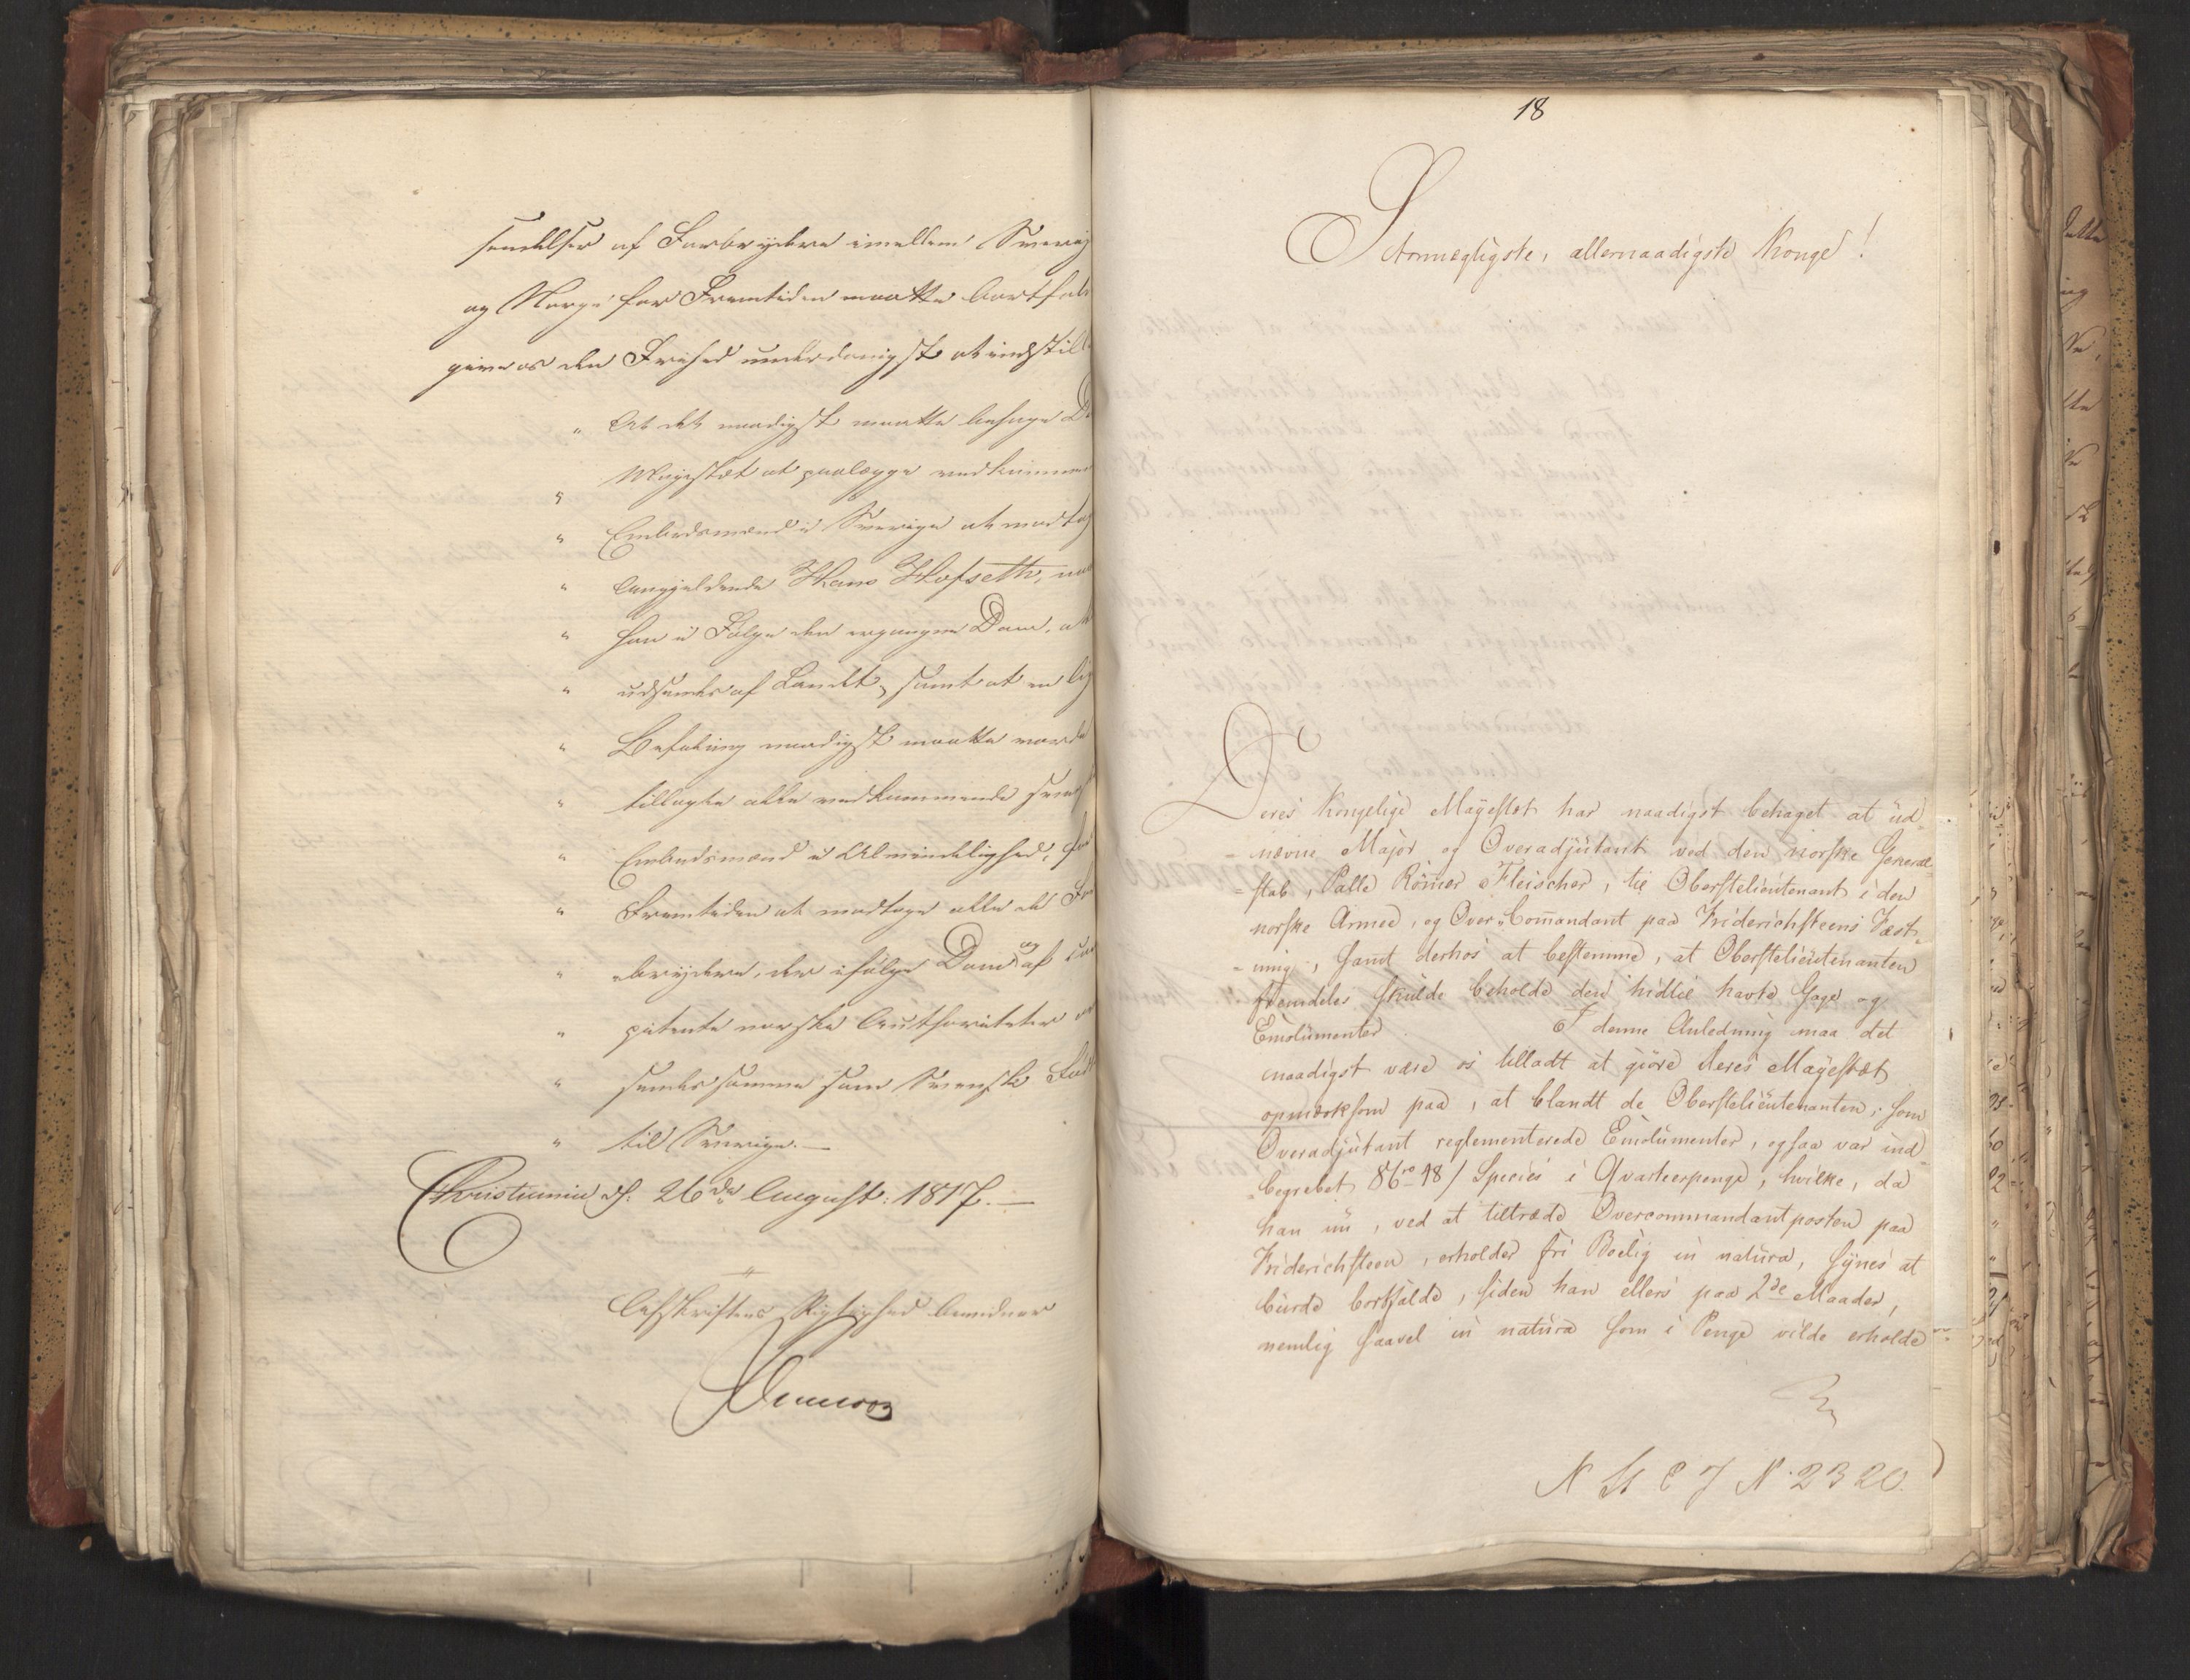 sendelser af Forbrydere imellem Sverig
og Norge for Fremtiden maatte bortfald
give os den Frihed underdanigst at indstill
" At det naadigst maatte behage De
" Majestæt at paalægge vedkomme
" Embedsmænd i Sverige at modtag
" Angjeldende Hans Hofseth, naa
" han i Følge den ergangne Dom,
" udsendes af Landet, samt at en lig
" Befaling naadigst maatte vorde
" tillagte alle vedkommende svens
" Embedsmænd i Almindelighed, for
" Fremtiden at modtage alle de For
" brydere, der ifølge Dom og af com
" petente norske Authoriteter
" sendes hjemme som Svenske Fød
" til Sverige.—
Christiania d. 26de August: 1817.—
Afskriftens Rigtighed bevidner
18
Stormægtigste, allernaadigste Konge!
Deres Kongelige Mayestæt har naadigst behaget at ud-
-nævne Major og Overadjutant ved den norske General-
-stab, Palle Römer Fleischer, til Oberstelieutenant i den
norske Armee, og Over-Comandant paa Friderichsteens Fæst-
-ning, samt derhos at bestemme, at Oberstelieutenanten
fremdeles skulde beholde den hidtil havte Gage og
Emolumenter. I denne Anledning maa det
naadigst være os tilladt at giöre Deres Mayestæt
opmærksom paa, at blandt de Oberstelieutenanten, som
Overadjutant reglementerede Emolumenter, ogsaa var ind-
-begrebet 86 48/ Species i Qvarteerpenge, hvilke, da
han nu, ved at tiltræde Overcommandantposten paa
Friderichsteen, erholder fri Boelig in natura, synes at
burde bortfalde, siden han ellers paa 2de Maader,
nemlig saavel in natura som i Penge vilde erholde
N St C J N. 2320.